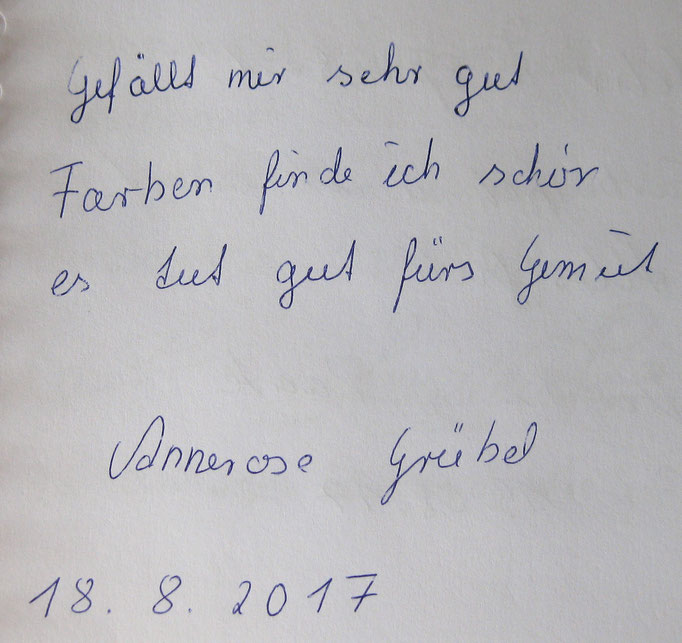 Gefällt mir sehr gut
Farben finde ich schön
es tut gut fürs Gemüt
Annerose Grübel
18. 8. 2017